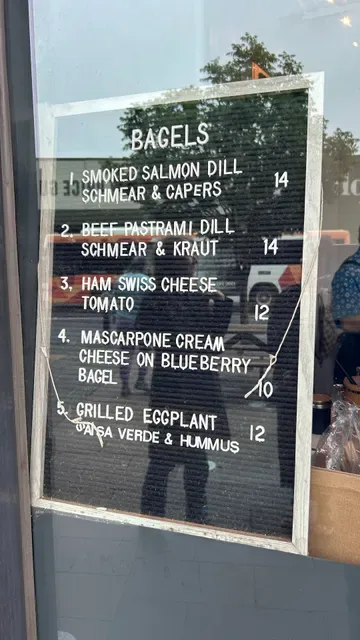 BAGELS
1. SMOKED SALMON DILL
SCHMEAR & CAPERS 14
2. BEEF PASTRAMI DILL
SCHMEAR & KRAUT 14
3, HAM SWISS CHEESE
TOMATO 12
4. MASCARPONE CREAM
CHEESE ON BLUEBERRY
BAGEL 10
5. GRILLED EGGPLANT
SALSA VERDE & HUMMUS 12